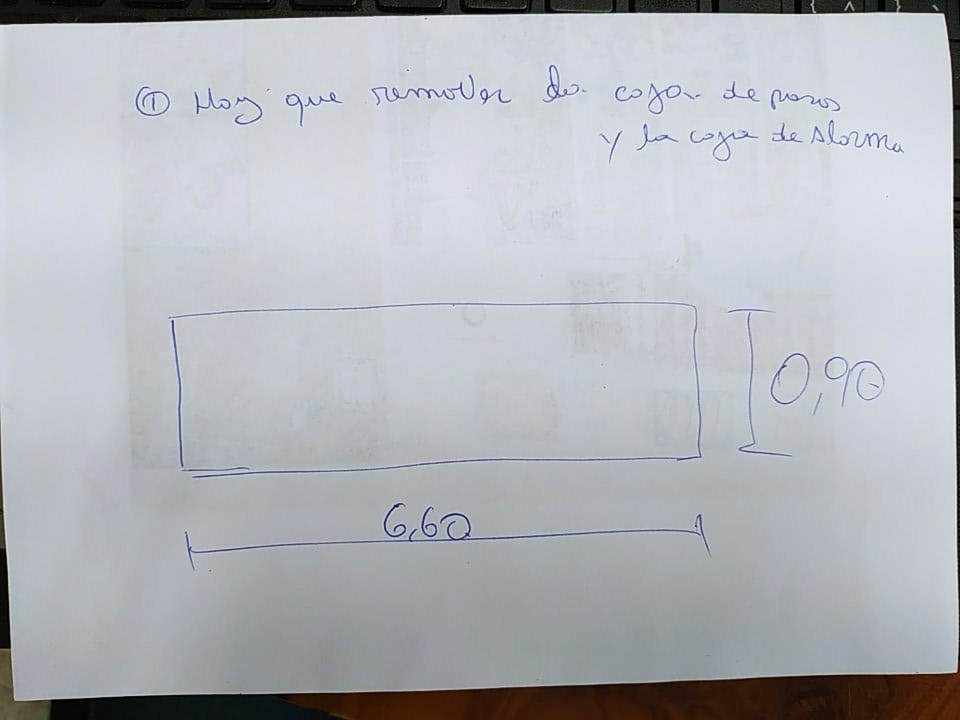 ① Hay que remover la caja de pasos
y la caja de alarma
0,90
6,60